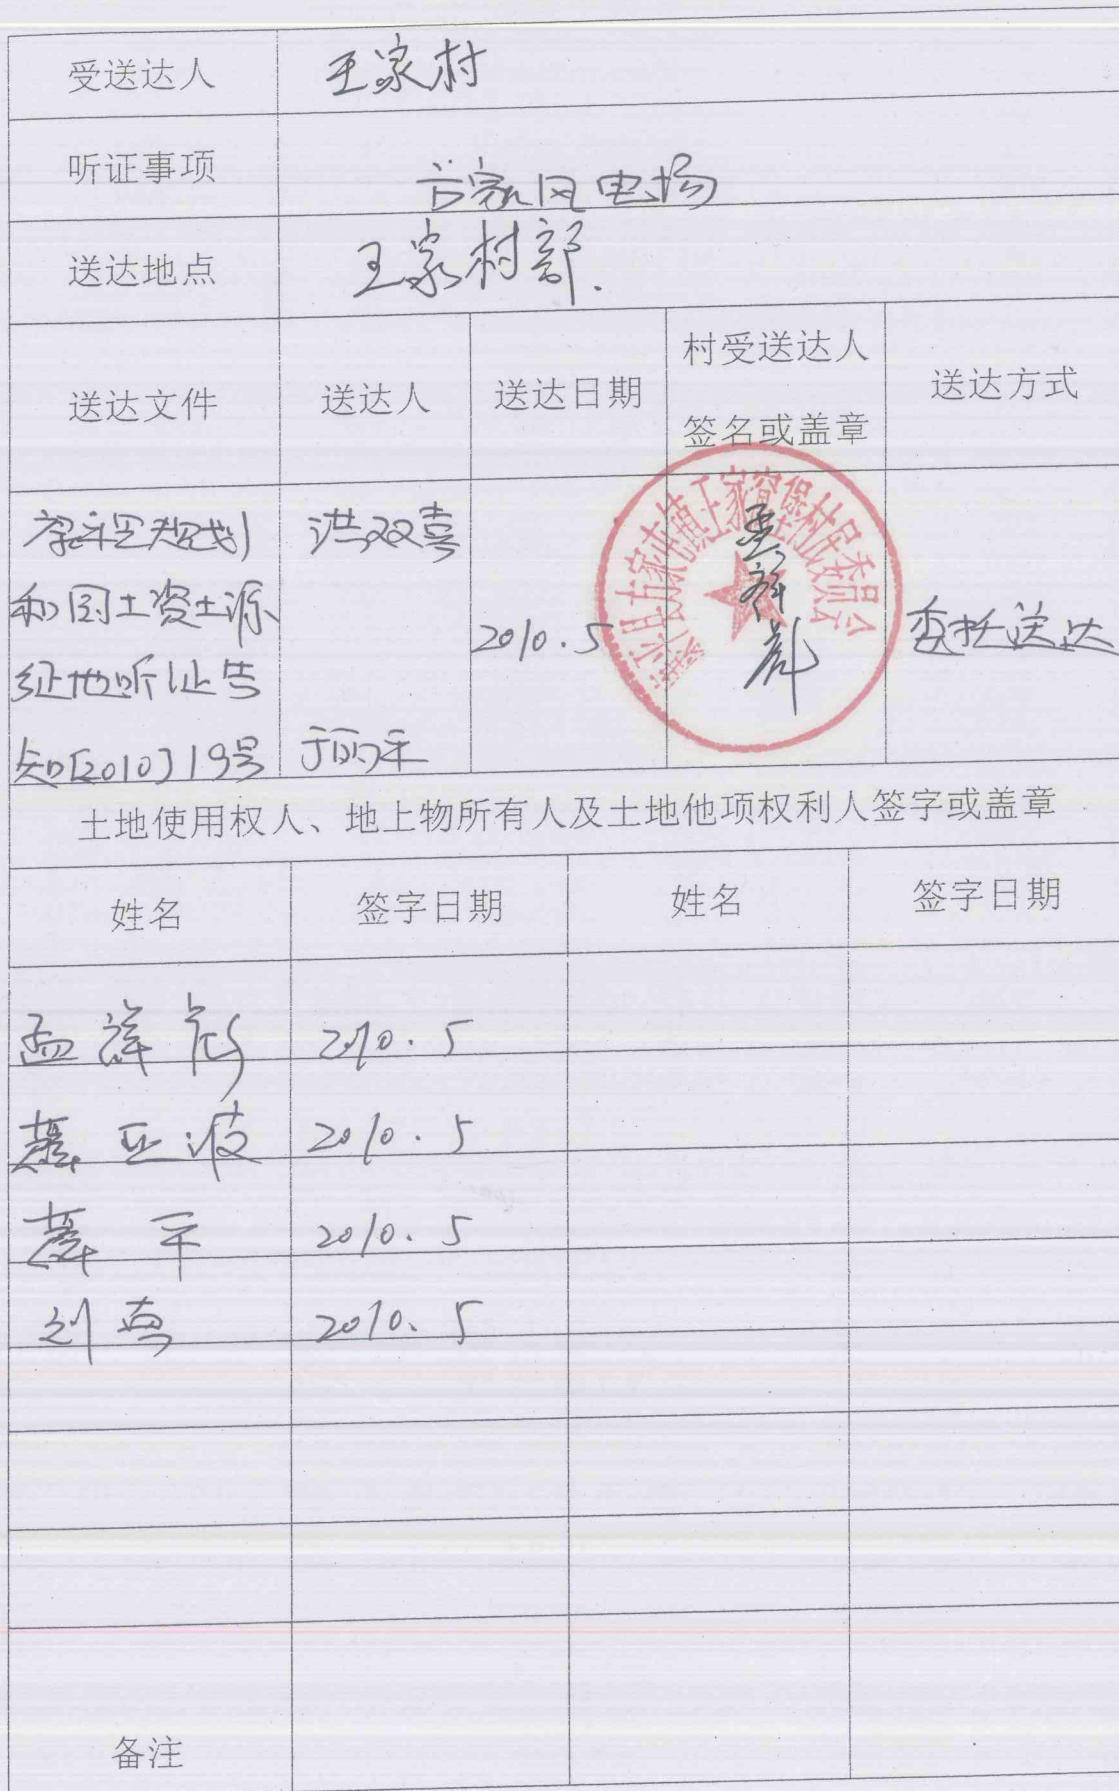 受送达人 王家村
听证事项 古家风电场
送达地点 王家村部.
送达文件 送达人 送达日期 村受送达人签名或盖章 送达方式
规划 洪双喜
和国土资土源
征地听证告
知[2010]19号 于丽平
2010.5
孟祥彪
县古家屯镇王家窑堡村民委员会
委托送达
土地使用权人、地上物所有人及土地他项权利人签字或盖章
姓名 签字日期 姓名 签字日期
孟祥彪 2010.5
亚波 2010.5
平 2010.5
刘喜 2010.5
备注